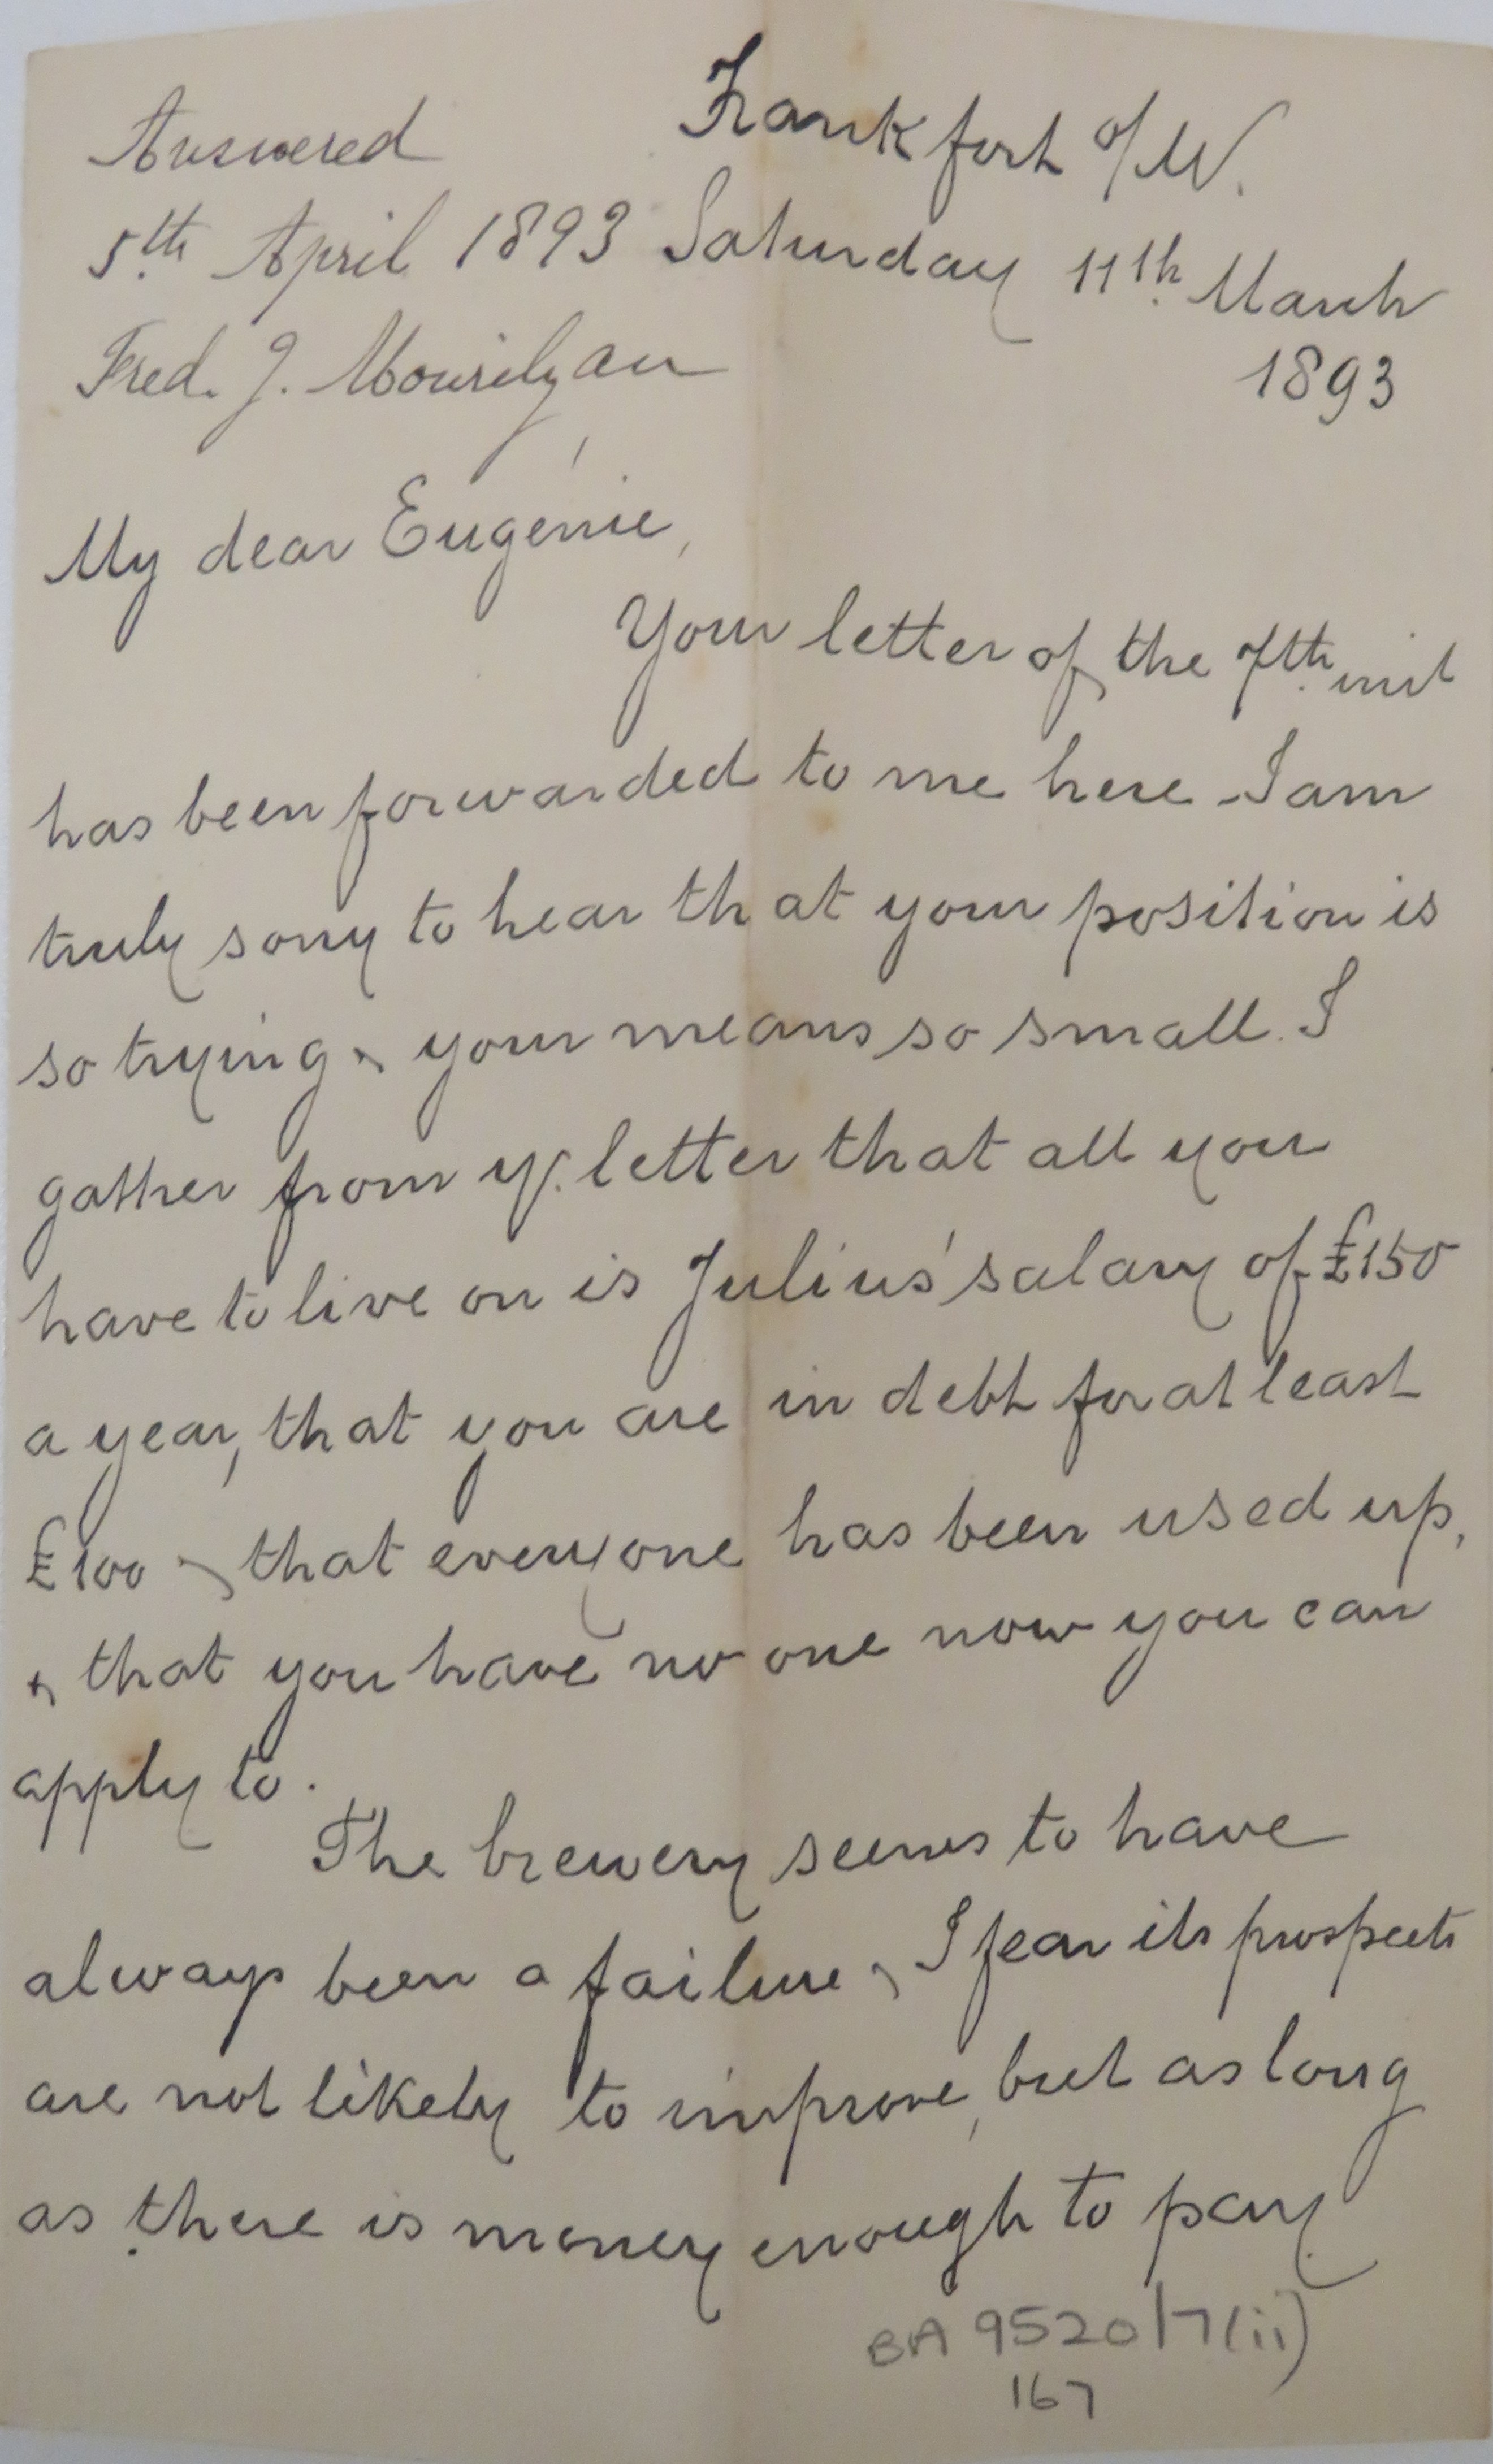 Answered
5th April 1893
Fred. J. Mourilyan
Frankfort o/M.
Saturday 11th March
1893
My dear Eugénie,
Your letter of the 7th inst
has been forwarded to me here. I am
truly sorry to hear that your position is
so trying & your means so small. I
gather from yr. letter that all you
have to live on is Julius' salary of £150
a year, that you are in debt for at least
£100 & that everyone has been used up,
& that you have no one now you can
apply to.
The brewery seems to have
always been a failure & I fear its prospects
are not likely to improve, but as long
as there is money enough to pay
BA 9520/7(ii)
167